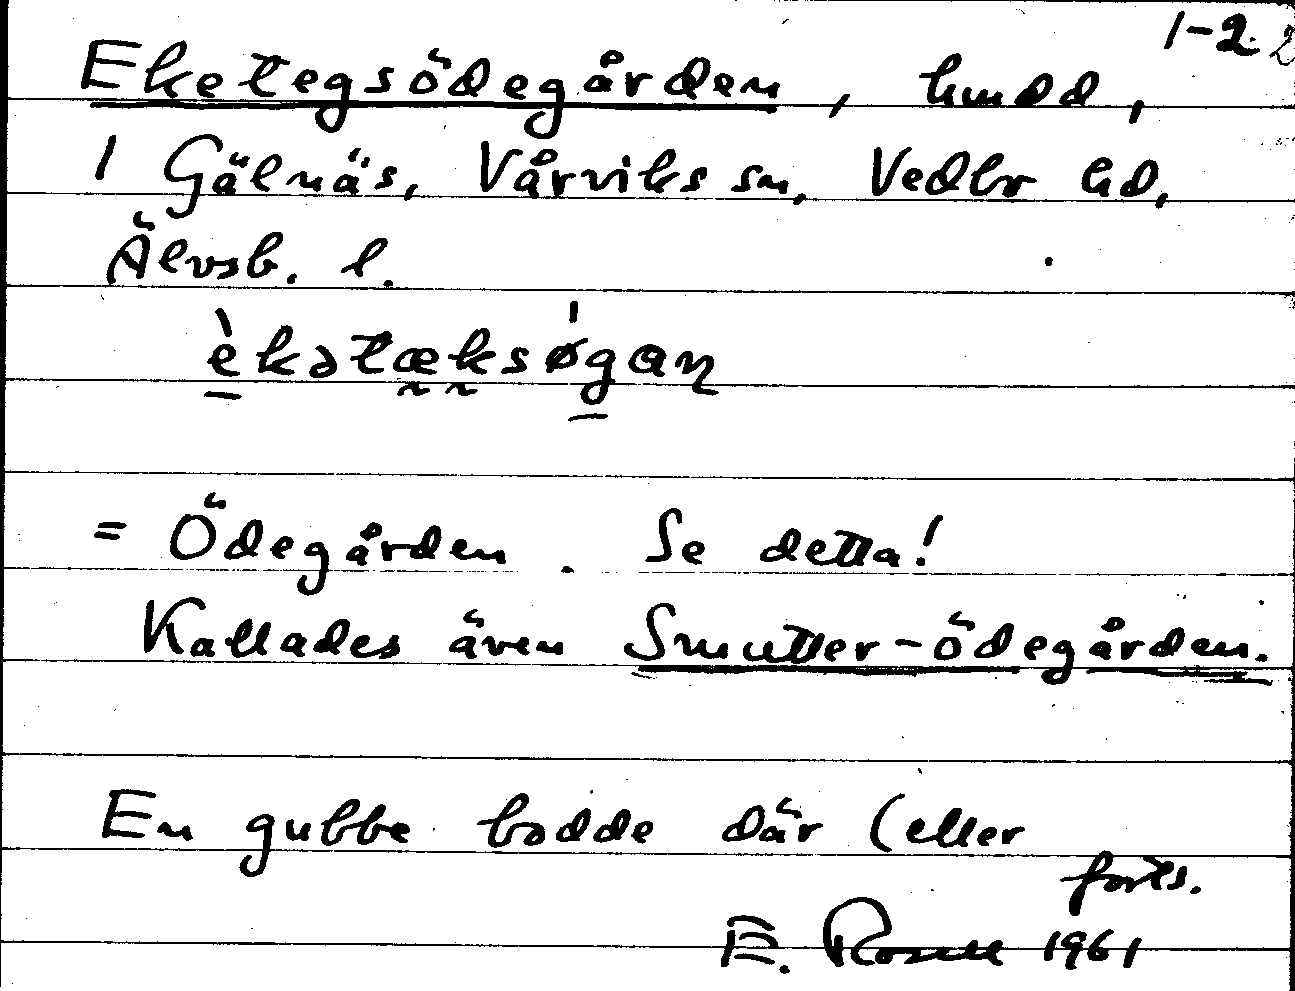 1-2. 2
Eketegsödegården, hmdd,
1 Gälnäs, Vårviks sn, Vedbr hd,
Älvsb. l.
èkətæksøgaɳ
= Ödegården. Se detta!
Kallades även Smutter-ödegården.
En gubbe bodde där (eller
forts.
E. Rosell 1961